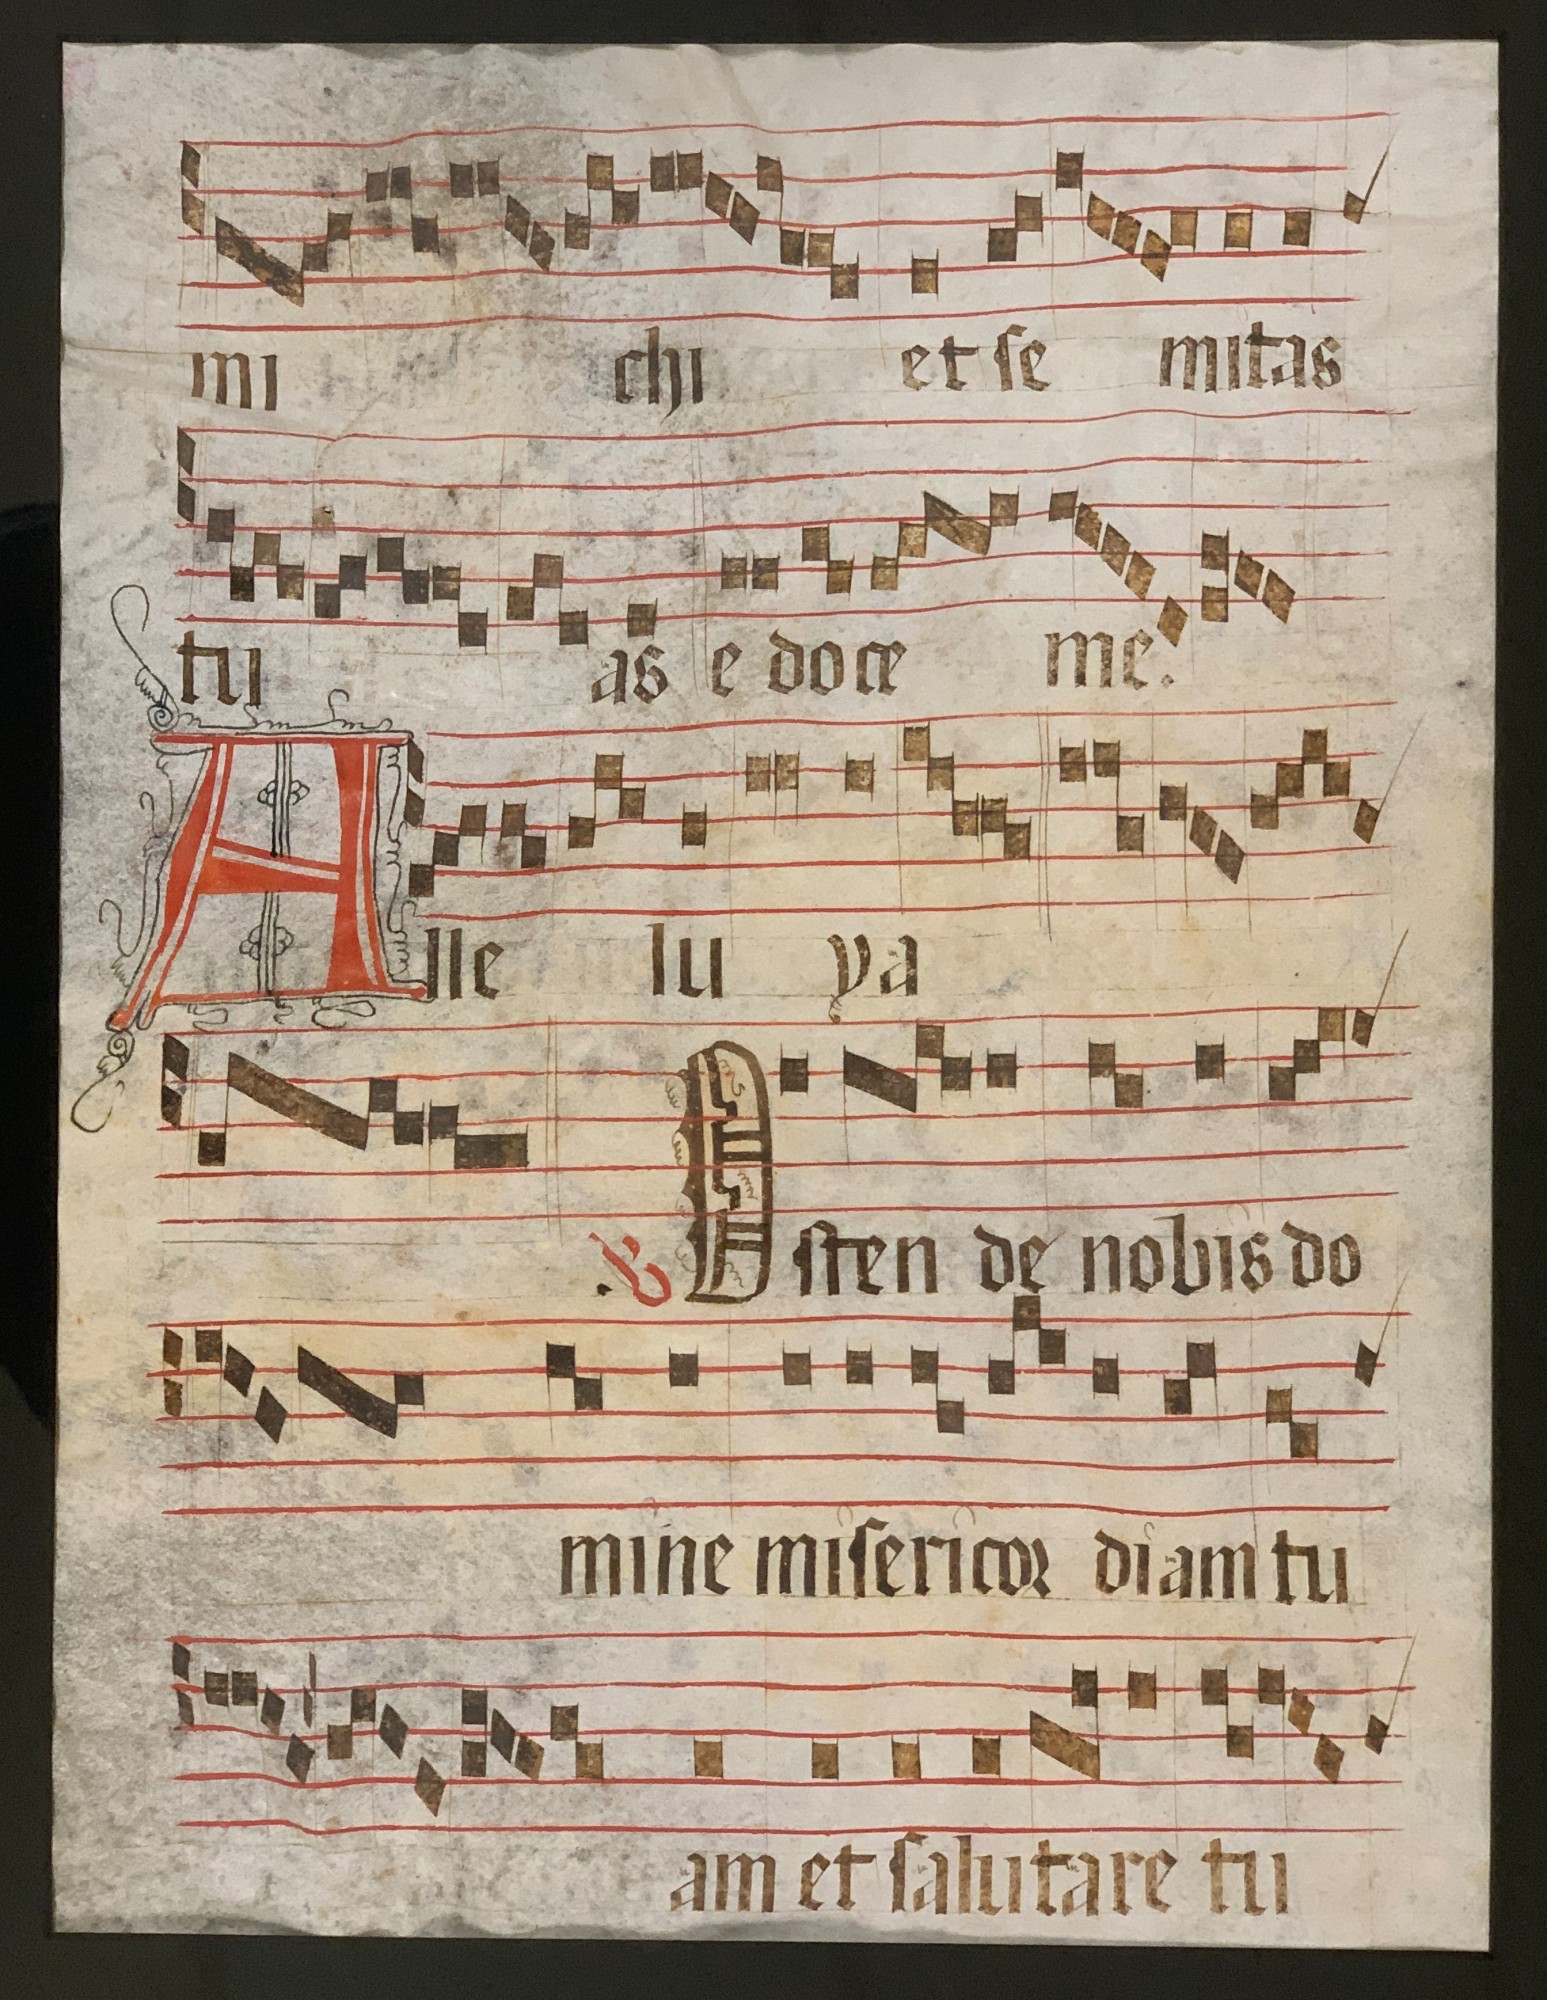 mi chi et se mitas
tu as e doce me.
Alle lu ya
℣ Osten de nobis do
mine misericor diam tu
am et salutare tu